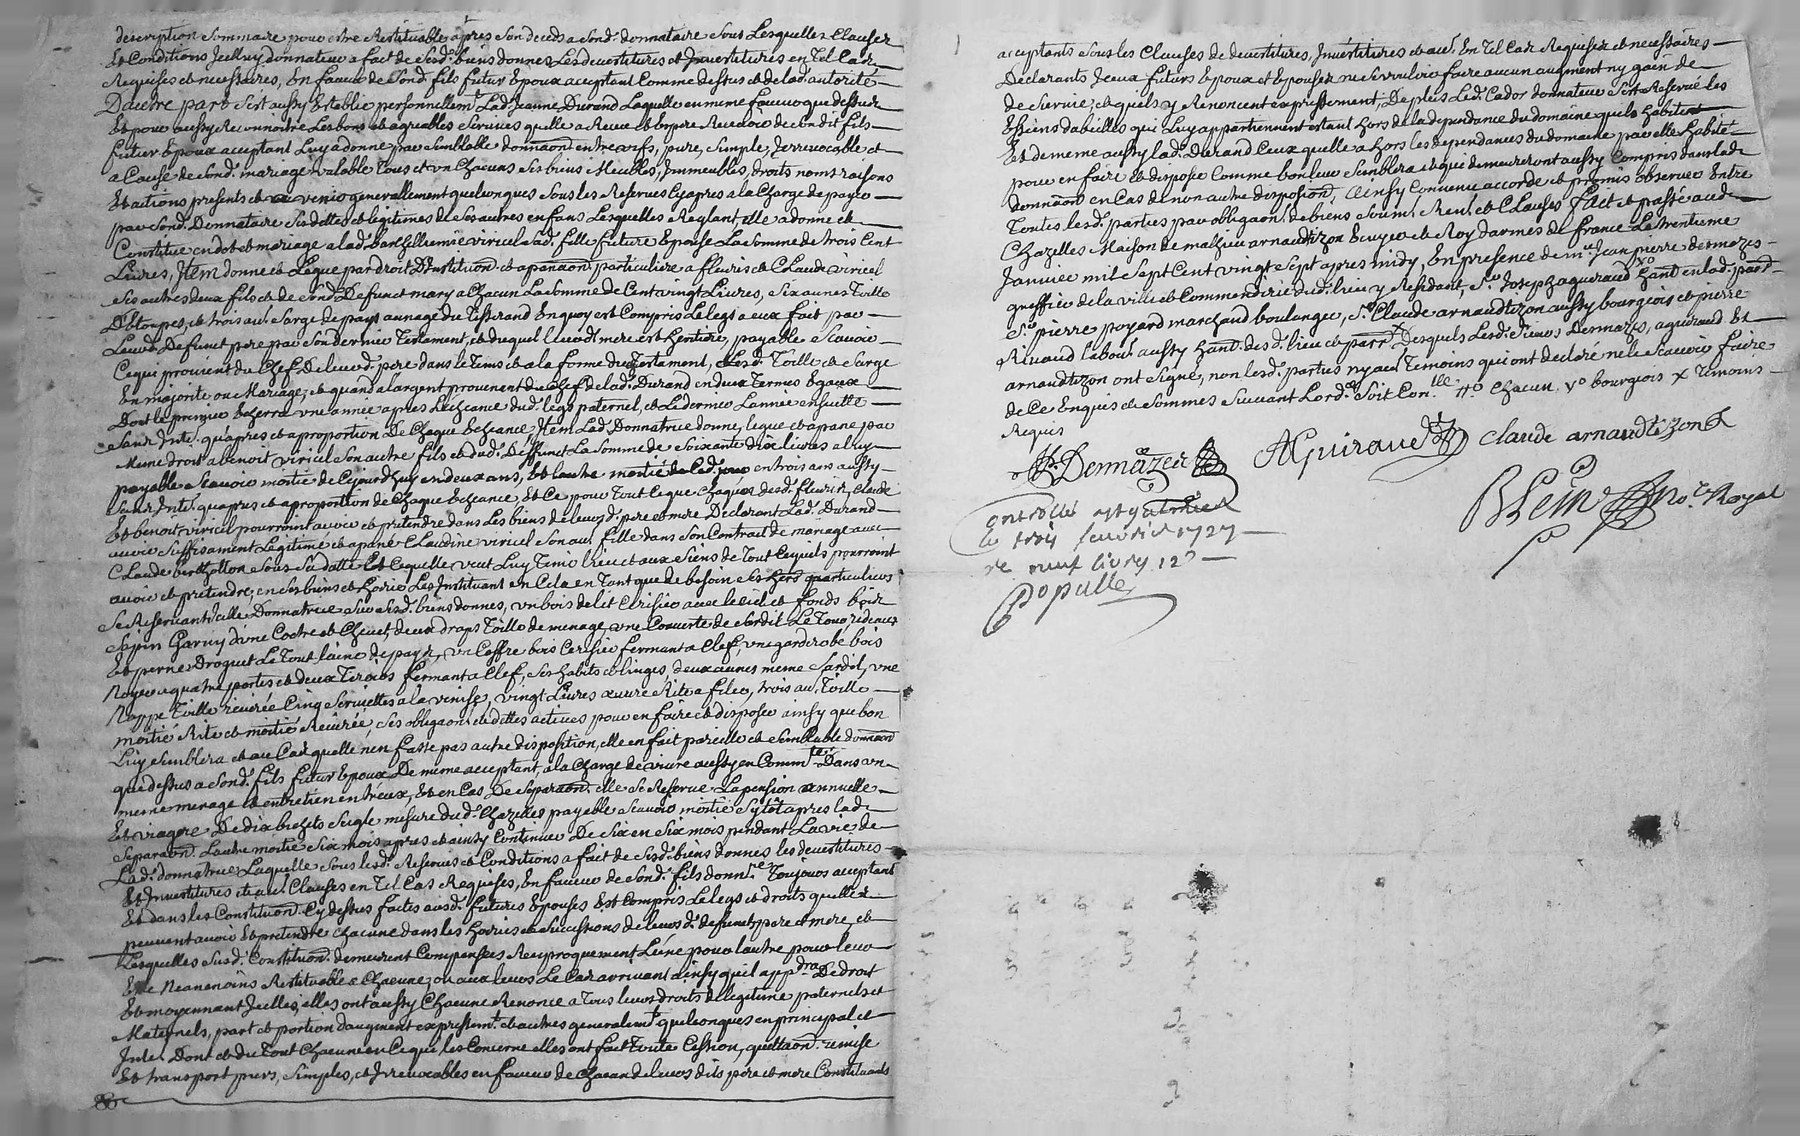 description sommaire pour estre Restituable apres son deceds a sond. donnataire sous Lesquelles Clauses
Et Conditions Jcelluy donnateur a fait de sesd. biens donnes Les devestitures et Jnvestitures en Tel Cas
Requises et necessaires, En faveur de sond. fils futur Epoux aceptant Comme dessus et de lad. autorité
D'autre part s'est aussy Establie personnellem.t Lad. Jeanne Durand Laquelle en meme faveur que dessus
Et pour aussy Reconnoitre Les bons et agreables services quelle a Receu et Espere Recevoir de son dit fils
futur Epoux aceptant Luy a donne par semblable donnaon entre vifs, pure, simple, Jrrevocable et
a Cause de sond. mariage valable Tous et un Chacuns ses biens Meubles, Jmmeubles, droits noms raisons
Et actions presents et a venir generallement quelconques sous les Reserves Cyapres a la Charge de payer
par sond. Donnataire ses dettes et legitimes de ses autres enfans Lesquelles Reglant elle a donne et
Constitue en dot et mariage a lad. barthellemie viricel sad. fille future Epouse La somme de trois Cent
Livres, Jtem donne et Legue par droit D'Jnstituon et apanaon particuliere a fleuris et Claude viricel
ses autres deux fils et de sond. Defunct mary a Chacun La somme de Cent vingt Livres, six aunes Toille
D'Etoupes, et trois au. sarge de pays aunage du Tisserand En quoy est Compris Le legs a eux fait par
Leurd. Defunct pere par son dernier Testament, et duquel Leurd. mere est heritiere, payable scavoir
Ce qui provient du Chef De leurd. pere dans le Tems et a la forme dud. Testament, Lesd. Toille et sarge
En majorité ou Mariage, et quand a largent provenant du Chef de lad. Durand en deux Termes Egaux
Dont le premier Echerra une année apres L'echeance dud. legs paternel, et Le dernier L'année ensuitte
sans Jnte. qu'apres et a proportion De Chaque Echeance, Jtem Lad. Donnatrice donne, legue et apane par
Meme droit a benoit viricel son autre fils et dud. Deffunct La somme de soixante dix livres a luy
payable scavoir moitie de Cejourd'huy en deux ans, Et l'autre moitié de Cad. jour en trois ans aussy
sans Jnte. qu'apres et a proportion de Chaque Echeance, Et Ce pour Tout Ce que Chaqu'un desd. fleuris, Claude
Et benoit viricel pourroint avoir et pretendre dans Les biens de leursd. pere et mere Declarant Lad. Durand
avoir suffisament Legitimé et apané Claudine viricel son au. fille dans son Contract de mariage avec
Claude berthollon sous sa datte Et Cequelle veut Luy Tenir lieu et aux siens de Tout Cequils pourroint
avoir et pretendre, en ses biens et hoirie Les Jnstituant en Cela en Tant que de besoin ses hers particuliers
se Reservant Jcelle Donnatrice sur sesd. biens donnes, un bois de lit Cerisier avec le ciel et fonds bois
sapin Garny d'une Coetre et Chevet, deux draps Toille de menage, une Couverte de Cordil Le Tour, rideaux
Et perne Droguet Le Tout laine de pays, un Coffre bois Cerisier fermant a Clef, une garderobe bois
Noyer a quatre portes et deux Tiroirs fermant a Clef, ses habits et linges, deux aunes meme Cardil, une
Nappe Toille reuvrée Cinq serviettes a la venise, vingt Livres oeuvre Rite a filer, trois au. Toille
moitié Rite et moitié Reuvrée, ses obligaons et dettes actives pour en faire et disposer ainsy que bon
Luy semblera et au Cas quelle n'en fasse pas autre disposition, elle en fait pareille et semblable donnaon
que dessus a sond. fils futur Epoux De meme aceptant, a la Charge de vivre aussy en Comm.te Dans un
meme menage et entretien entr'eux, Et en Cas De separaon. elle se Reserve La pension annuelle
Et viagere De dix bichets seigle mesure dud. Chazelles payable scavoir moitie sytôt apres lad.
separaon. L'autre moitié six mois apres et ainsy Continuer De six en six mois pendant La vie de
Lad. donnatrice Laquelle sous lesd. Reserves et Conditions a fait de sesd. biens donnes les devestitures
Et Jnvestitures et au. Clauses en Tel Cas Requises, En faveur de sond. fils donn.re Toujours aceptant
Et dans les Constituon. Cy dessus faites ausd. futures Epouses Est Compris Le legs et droits quelles
peuvent avoir Et pretendre Chacune dans les hoiries et successions de leurs d. defuncts pere et mere, et
Lesquelles susd. Constituon. demeurent Compensées Reciproquement L'une pour l'autre pour leur
Etre Neanmoins Restituable a Chacune, ou aux leurs Le Cas arrivant ainsy quil app.dra De droit
Et moyennant Jcelles, elles ont aussy Chacune Renonce a Tous leurs droits de legitime paternels et
Maternels, part et portion d'augment expressem.t et autres generalem.t quelconques en principal et
Jnte. Dont et du Tout Chacune en Ce qui les Concerne elles ont fait Toute Cession, quittaon. remise
Et transport purs, simples, et Jrrevocables en faveur de Chacun de leurs dits pere et mere Constituants
acceptants sous les Clauses de devestitures, Jnvestitures et au. En Tel Cas Requises et necessaires
Declarants Jceux futurs Epoux et Epouses ne se vouloir faire aucun augment ny gain de
de survie, et quels y Renoncent expressement, De plus Led. Cador donnateur s'est Reservé les
Essiens d'abeilles qui Luy appartiennent estant hors de la dependance du domaine quils habitent
Et de meme aussy lad. Durand Ceux quelle a hors les dependances du domaine par elle habité
pour en faire et disposer Comme bon leur semblera et qui demeureront aussy Compris dans lad.
donnaon en Cas de non autre disposion, Ainsy Convenu accorde et promis observer Entre
Toutes lesd. parties par obligaon. de biens soum. Ren. et Clauses fait et passé aud.
Chazelles Maison de mathieu arnaudtizon Ecuyer et Roy d'armes de france Le trentieme
Janvier mil sept Cent vingt sept apres midy, En presence de m.re Jean pierre dermazes
greffier de la ville et Commanderie dud. lieu y Residant, s.r Joseph aguiraud Xo hant en lad. parr.
s.r pierre poyard marchand boulanger, s.r Claude arnaudtizon aussy bourgeois et pierre
Rivaud labour aussy hant. desd. lieu et parr. X Desquels Lesd. sieurs Dermazes, aguiraud Et
arnaudtizon ont signé, non lesd. parties ny au. Temoins qui ont declaré ne le scavoir faire
de Ce Enquis et sommes suivant Lord.ce Soit Con.lle, Jt.o Chacun, Xo bourgeois X Temoins
Requis
Dermazes AGuiraud Claude arnaudtizon
BLein no.re Royal
Controllé a st
le trois fevrier 1727
re neuf livres 12 s
Populle